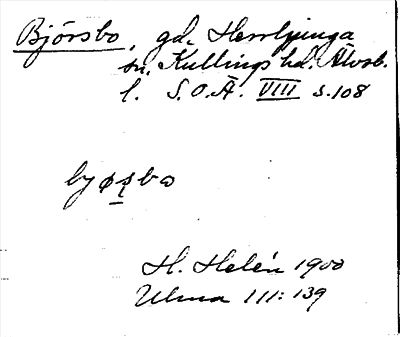 Björsbo, gd, Herrljunga
sn, Kullings hd. Älvsb.
l. S.O.Ä. VIII s. 108
byøsbo
H. Helén 1900
Ulma 111: 139